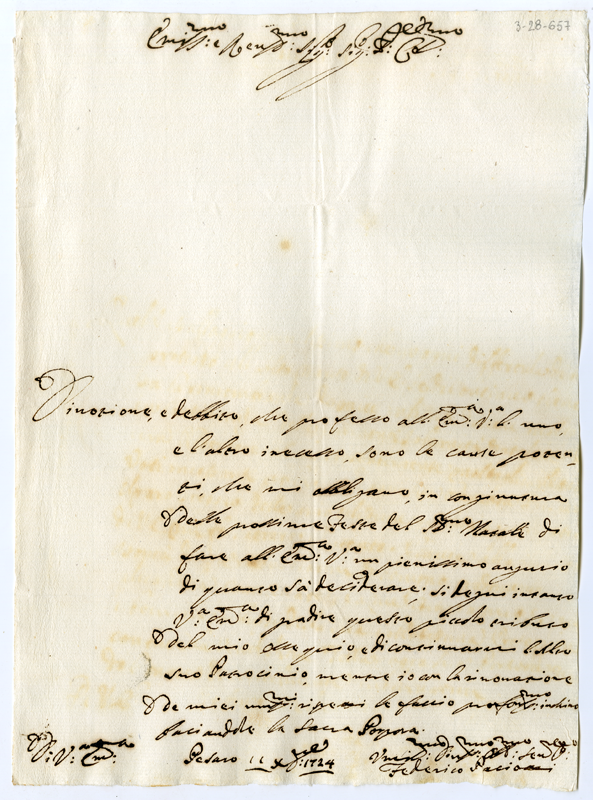 3-28-657
Em.mo e Rev.mo Sig.r Sig.r P.ron Col.mo
Divozione, e debbito, che professo all'Em.a V.a l'uno,
e l'altro incesso, sono le cause poten-
ti, che mi obbligano, in congiuntura
delle prossime Feste del SS.mo Natale di
fare all'Em.a V.a un pienissimo augurio
di quanto sà deciderare; si degni intanto
V.a Em.a di gradire questo piccolo tributo
del mio ossequio, e di continuarmi l'alto
suo Patrocinio, mentre io con la rinovazione
de miei rispetti le faccio prof.mo inchino
baciandole la Sacra Porpora.
Di V.a Em.a
Pesaro 11 X.bre 1724
Um.mo Dev.mo Obb.mo Ser.re
Federico